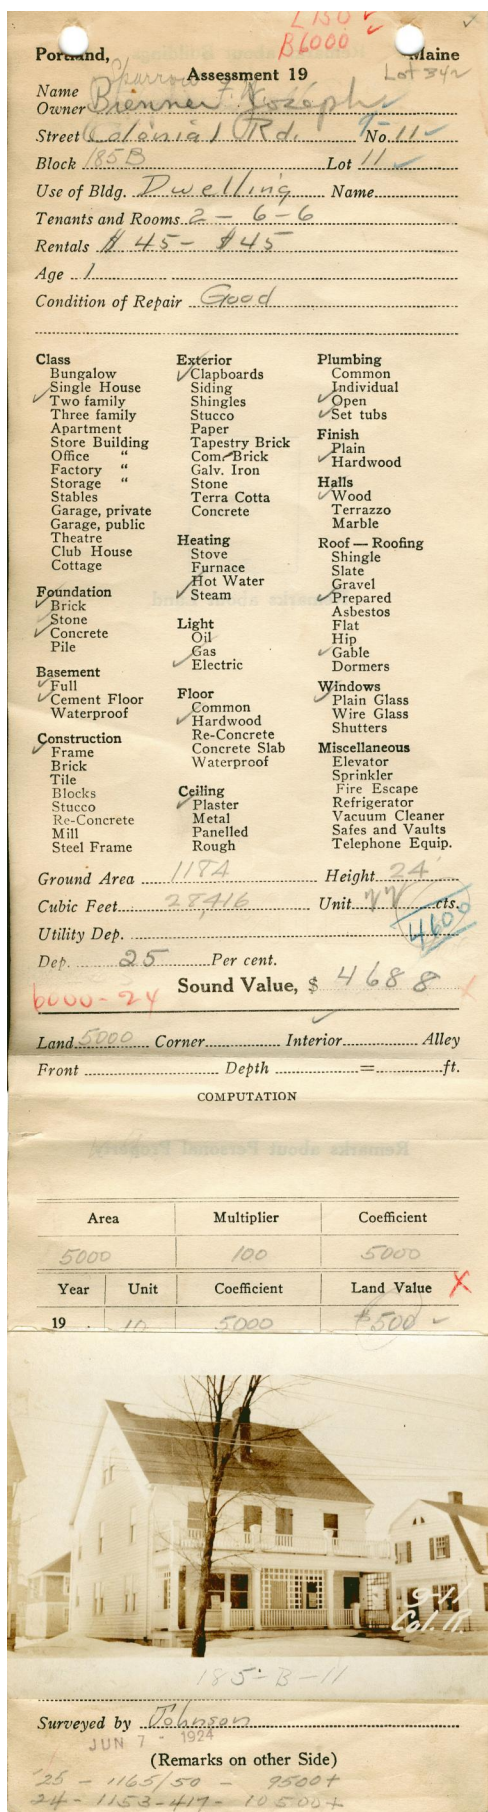 L 750
B 6000
Portland, Maine
Assessment 19 Lot 342
Sparrow
Name
Owner Brenner Joseph
Street Colonial Rd. No. 9-11
Block 185B Lot 11
Use of Bldg. Dwelling Name
Tenants and Rooms 2 - 6 - 6
Rentals $ 45 - $ 45
Age 1
Condition of Repair Good
Class
Bungalow
Single House
Two family
Three family
Apartment
Store Building
Office "
Factory "
Storage "
Stables
Garage, private
Garage, public
Theatre
Club House
Cottage
Foundation
Brick
Stone
Concrete
Pile
Basement
Full
Cement Floor
Waterproof
Construction
Frame
Brick
Tile
Blocks
Stucco
Re-Concrete
Mill
Steel Frame
Exterior
Clapboards
Siding
Shingles
Stucco
Paper
Tapestry Brick
Com. Brick
Galv. Iron
Stone
Terra Cotta
Concrete
Heating
Stove
Furnace
Hot Water
Steam
Light
Oil
Gas
Electric
Floor
Common
Hardwood
Re-Concrete
Concrete Slab
Waterproof
Ceiling
Plaster
Metal
Panelled
Rough
Plumbing
Common
Individual
Open
Set tubs
Finish
Plain
Hardwood
Halls
Wood
Terrazzo
Marble
Roof — Roofing
Shingle
Slate
Gravel
Prepared
Asbestos
Flat
Hip
Gable
Dormers
Windows
Plain Glass
Wire Glass
Shutters
Miscellaneous
Elevator
Sprinkler
Fire Escape
Refrigerator
Vacuum Cleaner
Safes and Vaults
Telephone Equip.
Ground Area 1184 Height 24'
Cubic Feet 28,416 Unit 22 cts.
4600
Utility Dep.
Dep. 25 Per cent.
Sound Value, $ 4688
6000-24
Land 5000 Corner Interior Alley
Front Depth = ft.
COMPUTATION
Area Multiplier Coefficient
5000 100 5000
Year Unit Coefficient Land Value
19 10 5000 $500
9-11
Col. R.
185-B-11
Surveyed by Johnson
JUN 7 - 1924
(Remarks on other Side)
25 - 1165/50 - 9500+
24 - 1153-417 - 10500+